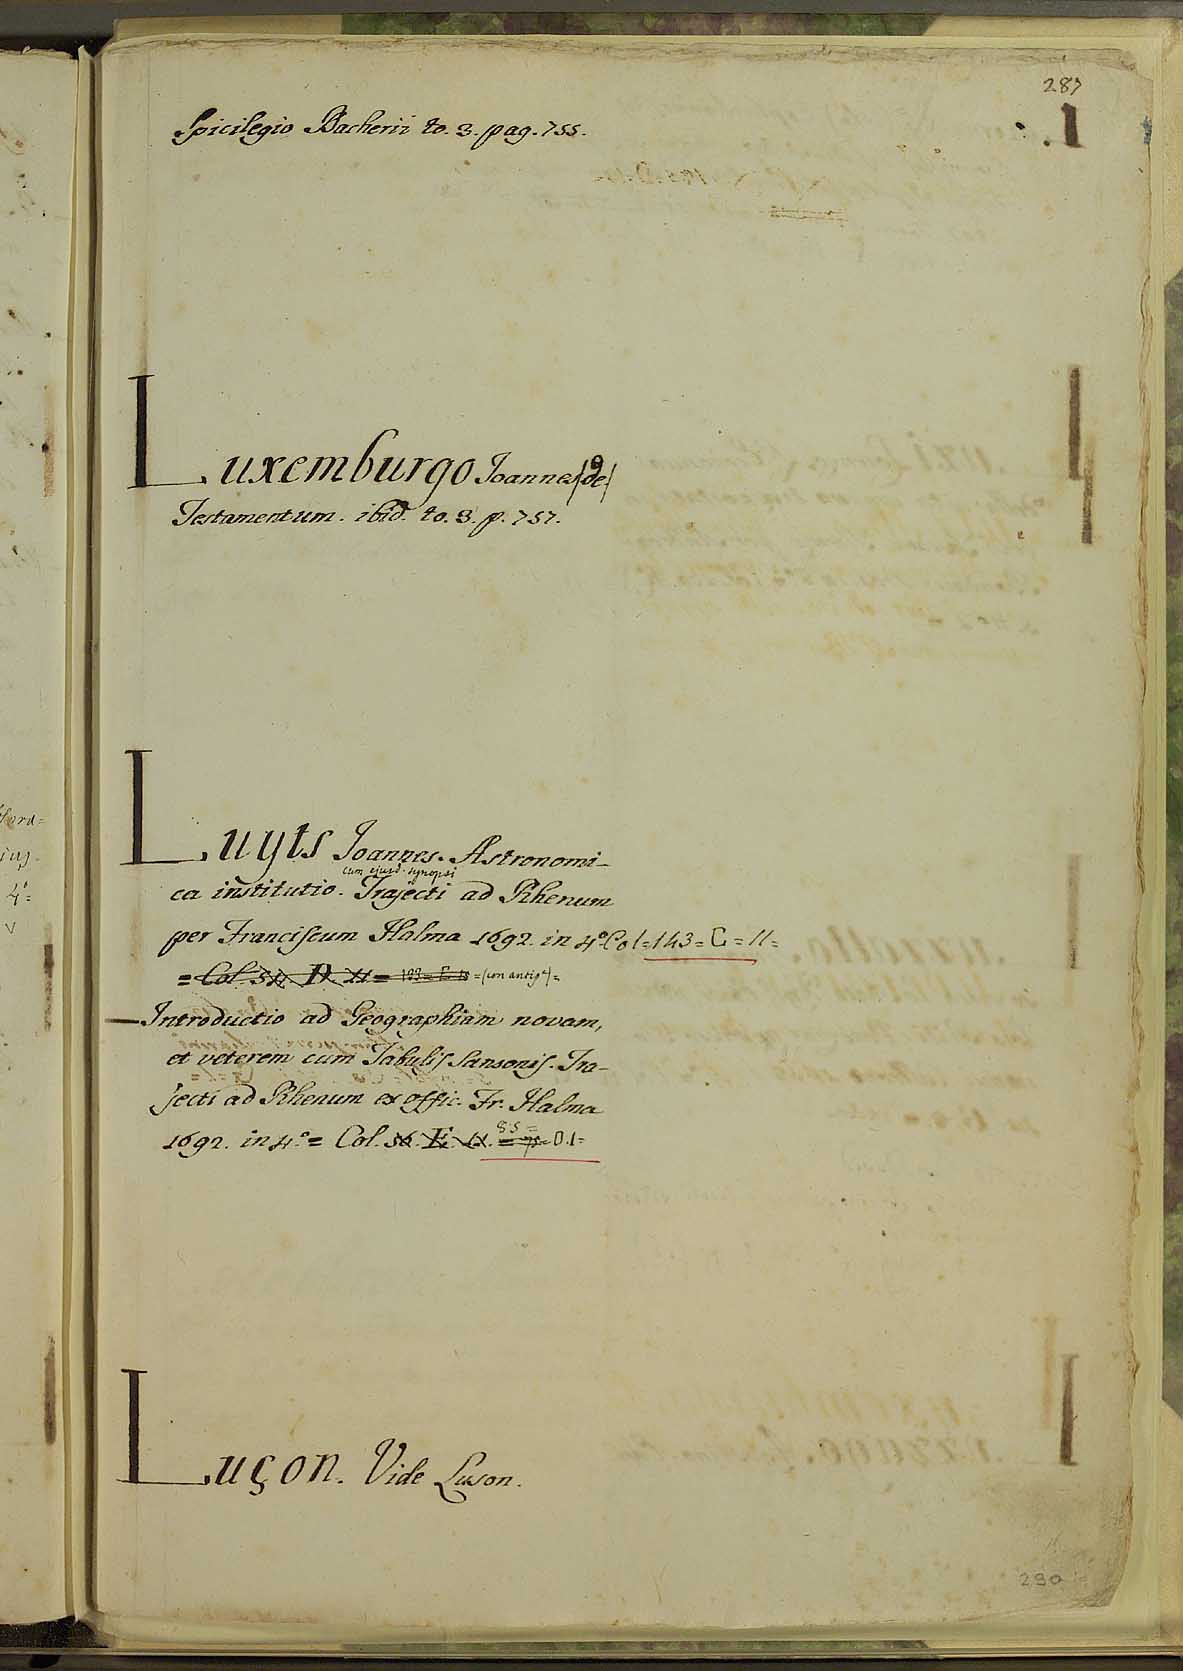 287
Spicilegio Bacherii to. 3. pag. 755.
Luxemburgo Joannes (de)
Testamentum. ibid. to. 3. p. 757.
Luyts Joannes. Astronomi-
cum ejusd. synopsi
ca institutio. Trajecti ad Rhenum
per Franciscum Halma 1692. in 4.º Col=143=C=11=
= Col. D. 11 = =(con antip.e)=
—Introductio ad Geographiam novam,
et veterem cum Tabulis Sansonis. Tra-
jecti ad Rhenum ex offic. Fr. Halma
85=
1692. in 4.º = Col. 56. E. 11. = D.1=
Luçon. Vide Luson.
290